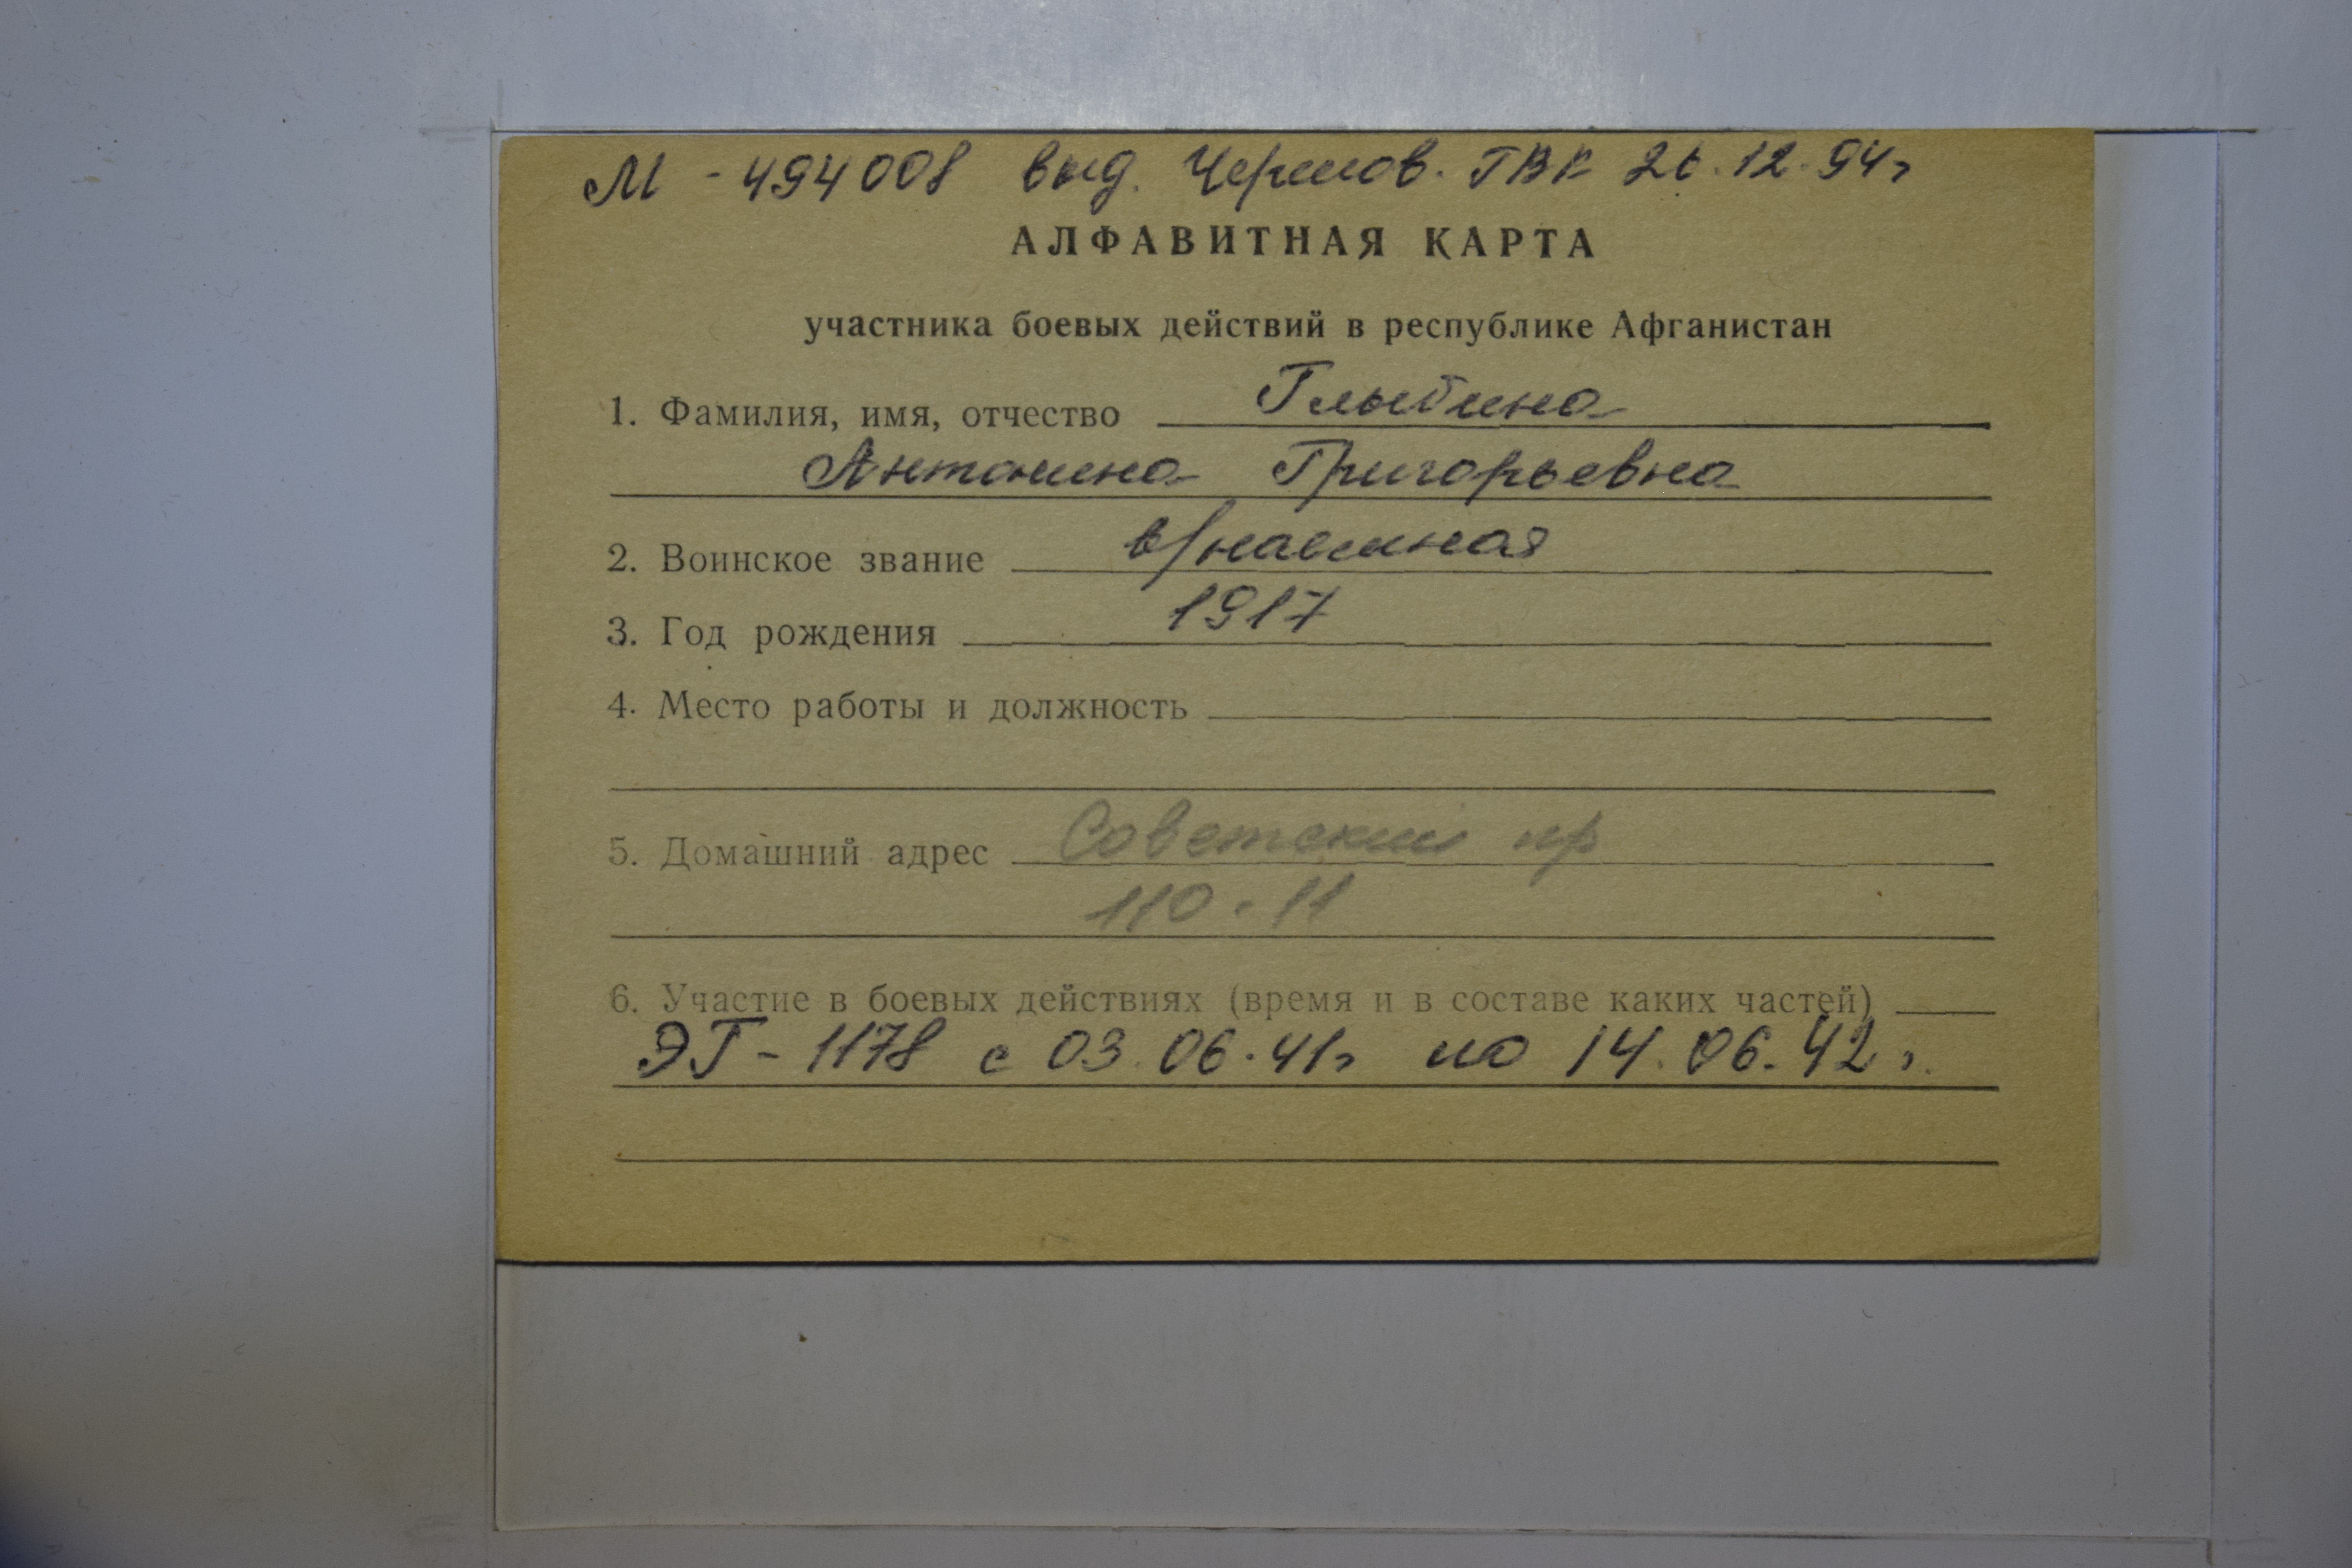 М - 494008 выд. Черепов. ГВК 26.12.94г
АЛФАВИТНАЯ КАРТА
участника боевых действий в республике Афганистан
1. Фамилия, имя, отчество Глыбина
Антонина Григорьевна
2. Воинское звание в/наемная
3. Год рождения 1917
4. Место работы и должность
5. Домашний адрес Советский пр
110-11
6. Участие в боевых действиях (время и в составе каких частей)
ЭГ-1178 с 03.06.41г по 14.06.42г.